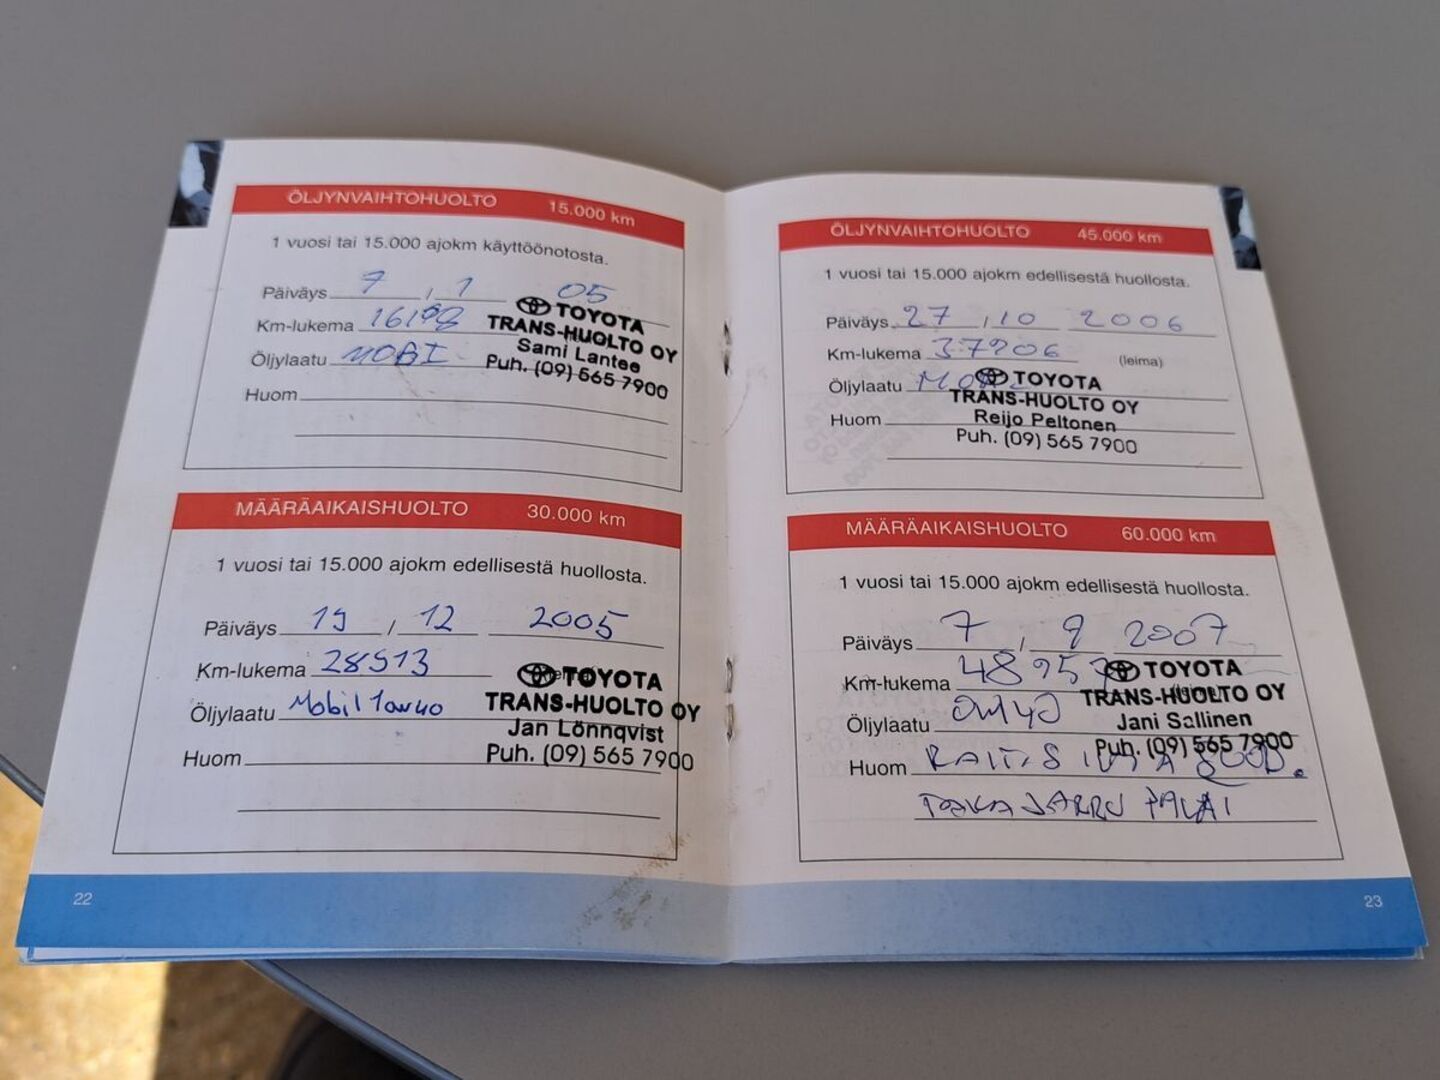 ÖLJYNVAIHTOHUOLTO 15.000 km
1 vuosi tai 15.000 ajokm käyttöönotosta.
Päiväys 7 / 1 05
Km-lukema
Öljylaatu MOBI
Huom
TOYOTA
TRANS-HUOLTO OY
Sami Lantee
Puh. (09) 565 7900
MÄÄRÄAIKAISHUOLTO 30.000 km
1 vuosi tai 15.000 ajokm edellisestä huollosta.
Päiväys 19 / 12 2005
Km-lukema 28913
Öljylaatu Mobil
Huom
TOYOTA
TRANS-HUOLTO OY
Jan Lönnqvist
Puh. (09) 565 7900
22
ÖLJYNVAIHTOHUOLTO 45.000 km
1 vuosi tai 15.000 ajokm edellisestä huollosta.
Päiväys 27 / 10 2006
Km-lukema 37906 (leima)
Öljylaatu
Huom
TOYOTA
TRANS-HUOLTO OY
Reijo Peltonen
Puh. (09) 565 7900
MÄÄRÄAIKAISHUOLTO 60.000 km
1 vuosi tai 15.000 ajokm edellisestä huollosta.
Päiväys 7 / 9 2007
Km-lukema
Öljylaatu
Huom
TOYOTA
TRANS-HUOLTO OY
(leima)
Jani Sallinen
Puh. (09) 565 7900
JARRU
23